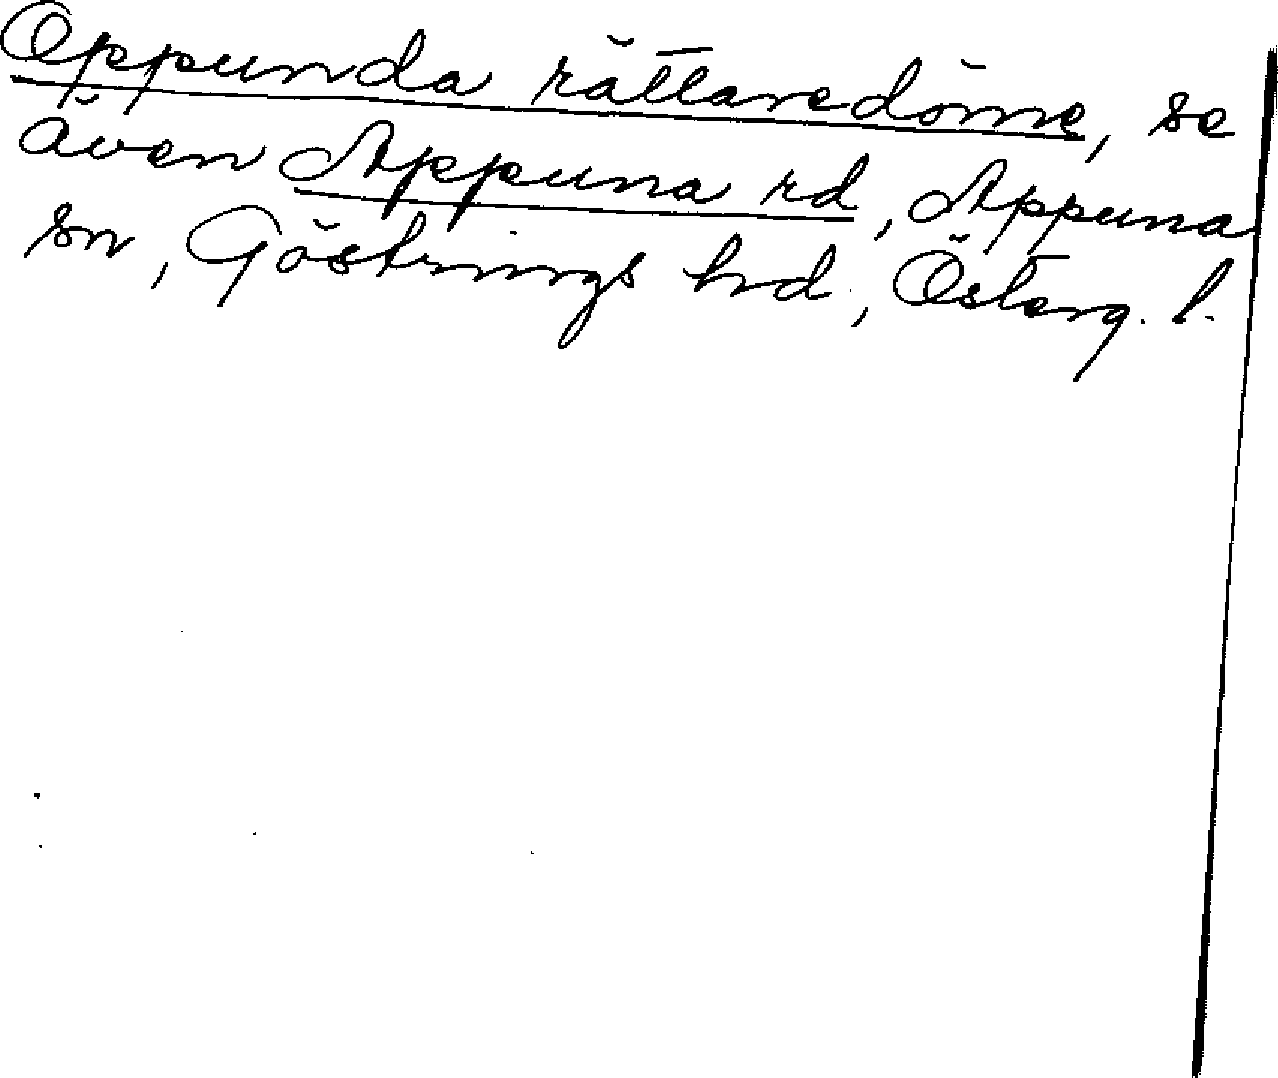 Oppunda rättaredöme, se
även Appuna rd, Appuna
sn, Göstrings hd, Österg. l.